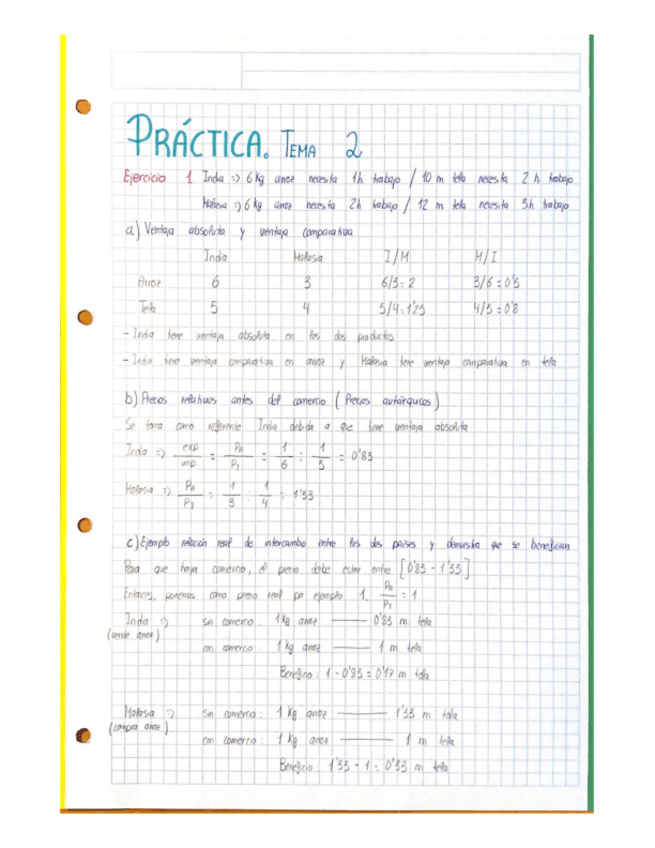 PRÁCTICA. TEMA 2
Ejercicio 1 India => 6 Kg arroz necesita 1h trabajo / 10 m tela necesita 2 h trabajo
Malasia => 6 Kg arroz necesita 2h trabajo / 12 m tela necesita 3h trabajo
a) Ventaja absoluta y ventaja comparativa
India Malasia I/M M/I
Arroz 6 3 6/3 = 2 3/6 = 0'5
Tela 5 4 5/4 = 1'25 4/5 = 0'8
- India tiene ventaja absoluta en los dos productos
- India tiene ventaja comparativa en arroz y Malasia tiene ventaja comparativa en tela
b) Precios relativos antes del comercio (Precios autárquicos)
Se toma como referente India debido a que tiene ventaja absoluta
India => exp/imp = PA/PT = 1/6 : 1/5 = 0'83
Malasia => PA/PT = 1/3 : 1/4 = 1'33
c) Ejemplo relación real de intercambio entre los dos países y demuestra que se benefician
Para que haya comercio, el precio debe estar entre [0'83 - 1'33]
Entonces, ponemos como precio real por ejemplo 1. PA/PT = 1
India => sin comercio: 1 Kg arroz — 0'83 m tela
(vende arroz)
con comercio: 1 Kg arroz — 1 m tela
Beneficio: 1 - 0'83 = 0'17 m tela
Malasia => Sin comercio: 1 Kg arroz — 1'33 m tela
(compra arroz)
con comercio: 1 Kg arroz — 1 m tela
Beneficio: 1'33 - 1 = 0'33 m tela